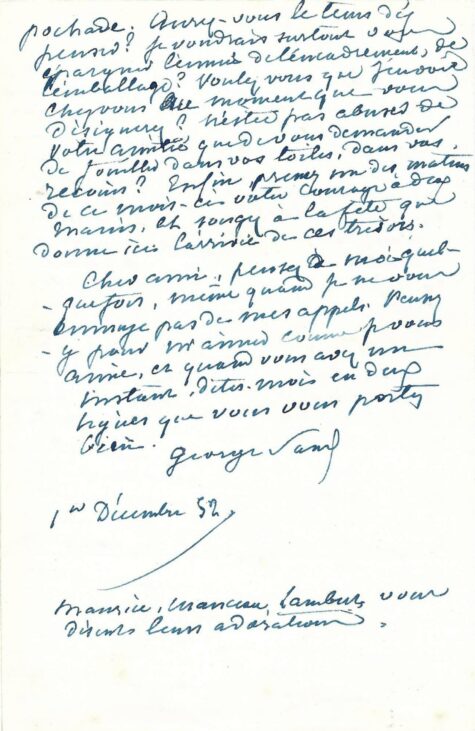 pochade. Aurez-vous le tems d'y
penser? je voudrais surtout vous
épargner l'ennui de l'encadrement, de
l'emballage? Voulez vous que j'envoie
chez vous au moment que vous
désignerez? n'est ce pas abuser de
votre amitié que de vous demander
de fouiller dans vos toiles, dans vos
recoins? Enfin, prenez un des matins
de ce mois-ci votre courage à deux
mains, et songez à la fête que
donne ici l'arrivée de ces trésors.
Cher ami, pensez à moi quel-
-quefois, même quand je ne vous
ennuye pas de mes appels. Pensez
-y pour m'aimer comme je vous
aime, et quand vous avez un
instant, dites-moi en deux
lignes que vous vous portez
bien.
George Sand
1er Décembre 52.
Maurice, Manceau, Lambert, vous
disent leurs adorations.